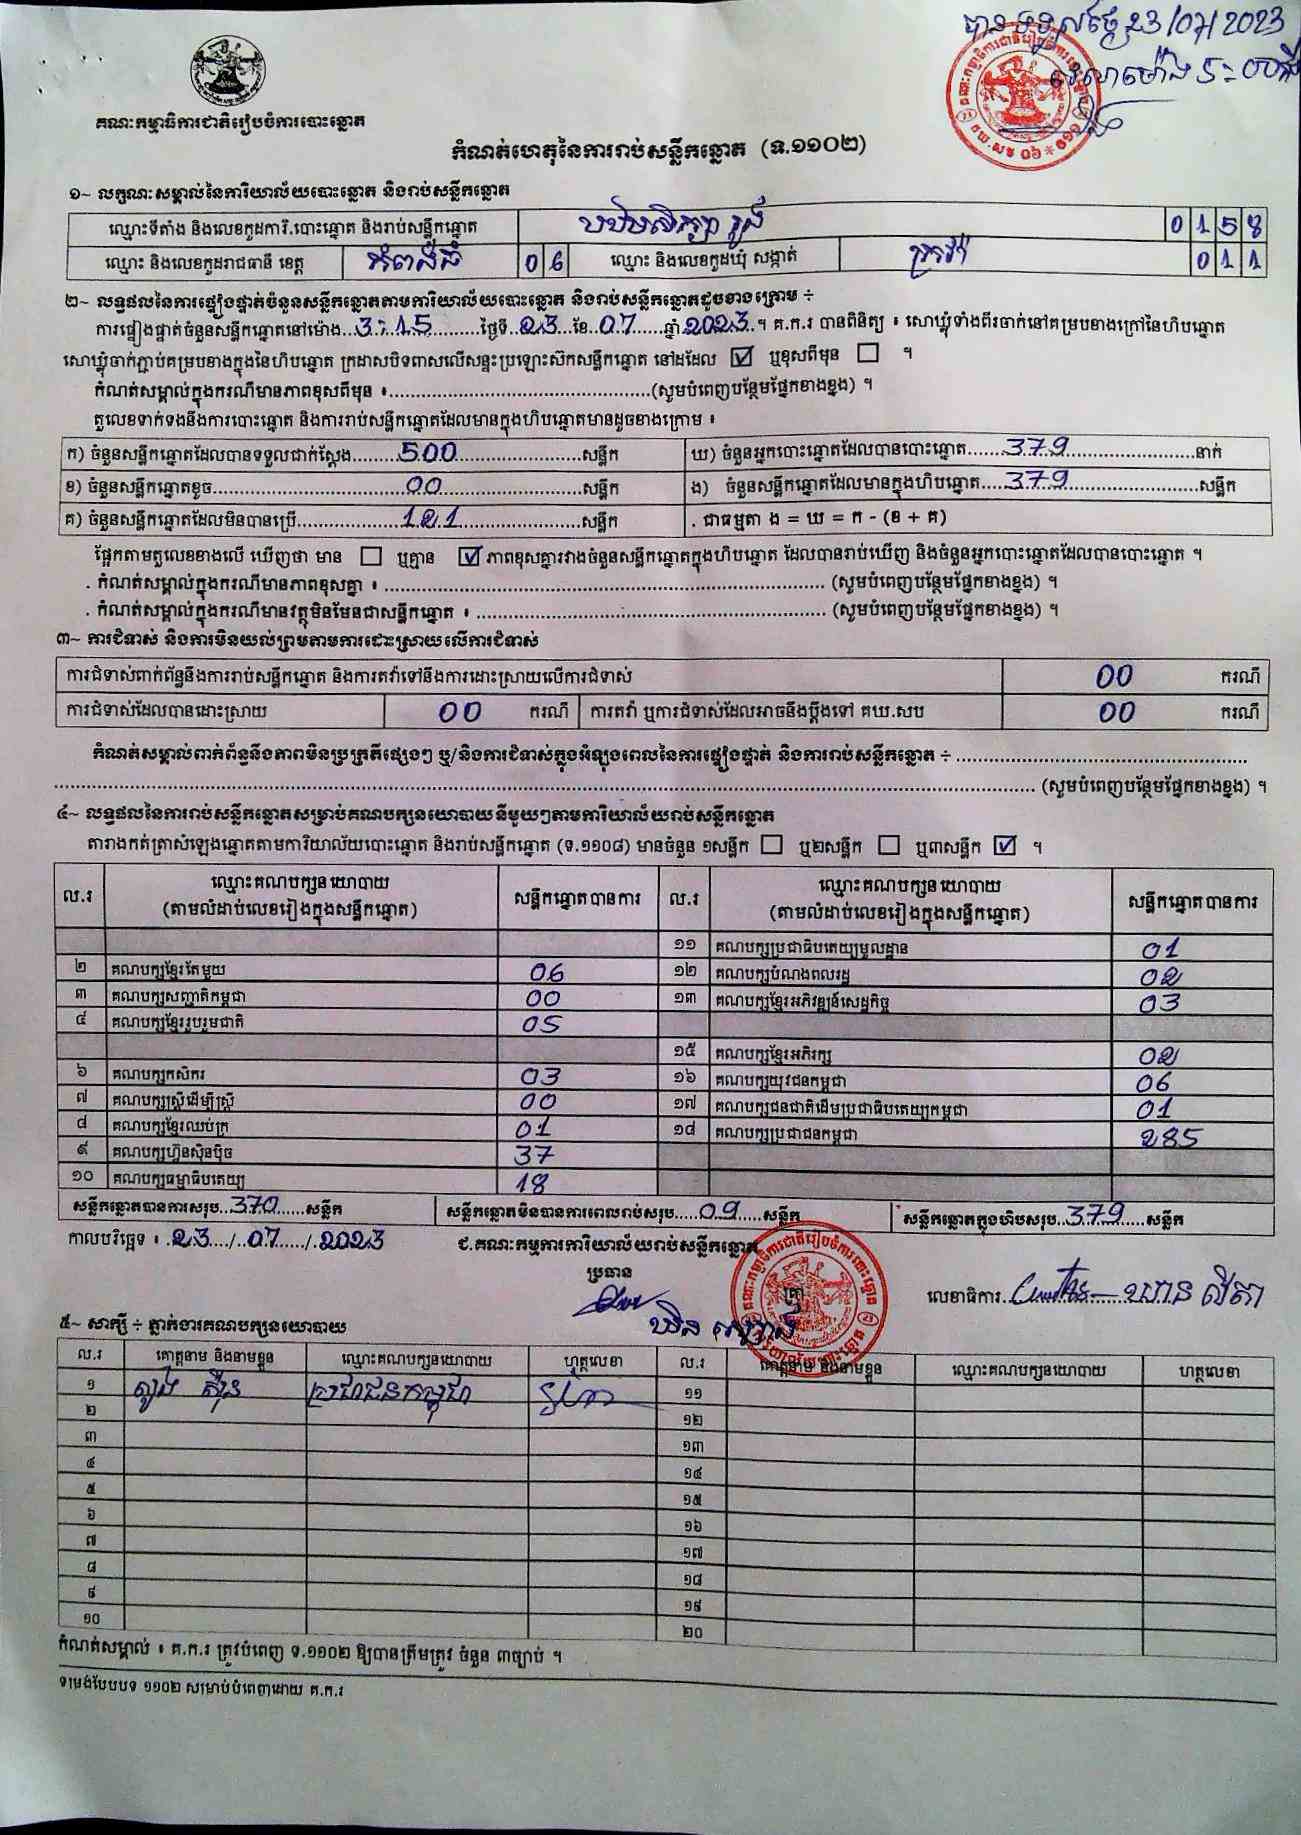 បានទទួលថ្ងៃ 23/07/2023
វេលាម៉ោង 5:00
គណៈកម្មាធិការជាតិរៀបចំការបោះឆ្នោត
កំណត់ហេតុនៃការរាប់សន្លឹកឆ្នោត (ទ.១១០២)
១~ លក្ខណៈសម្គាល់នៃការិយាល័យបោះឆ្នោត និងរាប់សន្លឹកឆ្នោត
ឈ្មោះទីតាំង និងលេខកូដការិ.បោះឆ្នោត និងរាប់សន្លឹកឆ្នោត បឋមសិក្សា 0158
ឈ្មោះ និងលេខកូដរាជធានី ខេត្ត កំពង់ធំ 06 ឈ្មោះ និងលេខកូដឃុំ សង្កាត់ ក្រវ៉ា 011
២~ លទ្ធផលនៃការផ្ទៀងផ្ទាត់ចំនួនសន្លឹកឆ្នោតតាមការិយាល័យបោះឆ្នោត និងរាប់សន្លឹកឆ្នោតដូចខាងក្រោម ÷
ការផ្ទៀងផ្ទាត់ចំនួនសន្លឹកឆ្នោតនៅម៉ោង..3:15......ថ្ងៃទី..23..ខែ.07....ឆ្នាំ.2023..។ គ.ក.រ បានពិនិត្យ ៖ សោឃ្លុំទាំងពីរចាក់នៅគម្របខាងក្រៅនៃហិបឆ្នោត
សោឃ្លុំចាក់ភ្ជាប់គម្របខាងក្នុងនៃហិបឆ្នោត ក្រដាសបិទពាសលើសន្ទះប្រឡោះស៊កសន្លឹកឆ្នោត នៅដដែល ☑ ឬខុសពីមុន ☐ ។
កំណត់សម្គាល់ក្នុងករណីមានភាពខុសពីមុន ៖......................(សូមបំពេញបន្ថែមផ្នែកខាងខ្នង) ។
តួលេខទាក់ទងនឹងការបោះឆ្នោត និងការរាប់សន្លឹកឆ្នោតដែលមានក្នុងហិបឆ្នោតមានដូចខាងក្រោម ៖
ក) ចំនួនសន្លឹកឆ្នោតដែលបានទទួលជាក់ស្តែង........500..........សន្លឹក ឃ) ចំនួនអ្នកបោះឆ្នោតដែលបានបោះឆ្នោត......379..........នាក់
ខ) ចំនួនសន្លឹកឆ្នោតខូច..........00..........សន្លឹក ង) ចំនួនសន្លឹកឆ្នោតដែលមានក្នុងហិបឆ្នោត....379..........សន្លឹក
គ) ចំនួនសន្លឹកឆ្នោតដែលមិនបានប្រើ..........121..........សន្លឹក . ជាធម្មតា ង = ឃ = ក - (ខ + គ)
ផ្អែកតាមតួលេខខាងលើ ឃើញថា មាន ☐ ឬគ្មាន ☑ ភាពខុសគ្នារវាងចំនួនសន្លឹកឆ្នោតក្នុងហិបឆ្នោត ដែលបានរាប់ឃើញ និងចំនួនអ្នកបោះឆ្នោតដែលបានបោះឆ្នោត ។
. កំណត់សម្គាល់ក្នុងករណីមានភាពខុសគ្នា ៖ ...................... (សូមបំពេញបន្ថែមផ្នែកខាងខ្នង) ។
. កំណត់សម្គាល់ក្នុងករណីមានវត្ថុមិនមែនជាសន្លឹកឆ្នោត ៖ ...................... (សូមបំពេញបន្ថែមផ្នែកខាងខ្នង) ។
៣~ ការជំទាស់ និងការមិនយល់ព្រមតាមការដោះស្រាយលើការជំទាស់
ការជំទាស់ពាក់ព័ន្ធនឹងការរាប់សន្លឹកឆ្នោត និងការតវ៉ាទៅនឹងការដោះស្រាយលើការជំទាស់ 00 ករណី
ការជំទាស់ដែលបានដោះស្រាយ 00 ករណី ការតវ៉ា ឬការជំទាស់ដែលអាចនឹងប្តឹងទៅ គឃ.សប 00 ករណី
កំណត់សម្គាល់ពាក់ព័ន្ធនឹងភាពមិនប្រក្រតីផ្សេងៗ ឬ/និងការជំទាស់ក្នុងអំឡុងពេលនៃការផ្ទៀងផ្ទាត់ និងការរាប់សន្លឹកឆ្នោត ÷ ......................
...................... (សូមបំពេញបន្ថែមផ្នែកខាងខ្នង) ។
៤~ លទ្ធផលនៃការរាប់សន្លឹកឆ្នោតសម្រាប់គណបក្សនយោបាយនីមួយៗតាមការិយាល័យរាប់សន្លឹកឆ្នោត
តារាងកត់ត្រាសំឡេងឆ្នោតតាមការិយាល័យបោះឆ្នោត និងរាប់សន្លឹកឆ្នោត (ទ.១១០៨) មានចំនួន ១សន្លឹក ☐ ឬ២សន្លឹក ☐ ឬ៣សន្លឹក ☑ ។
ល.រ ឈ្មោះគណបក្សនយោបាយ សន្លឹកឆ្នោតបានការ ល.រ ឈ្មោះគណបក្សនយោបាយ សន្លឹកឆ្នោតបានការ
(តាមលំដាប់លេខរៀងក្នុងសន្លឹកឆ្នោត) (តាមលំដាប់លេខរៀងក្នុងសន្លឹកឆ្នោត)
១១ គណបក្សប្រជាធិបតេយ្យមូលដ្ឋាន 01
២ គណបក្សខ្មែរតែមួយ 06 ១២ គណបក្សបំណងពលរដ្ឋ 02
៣ គណបក្សសញ្ជាតិកម្ពុជា 00 ១៣ គណបក្សខ្មែរអភិវឌ្ឍន៍សេដ្ឋកិច្ច 03
៤ គណបក្សខ្មែររួបរួមជាតិ 05
១៥ គណបក្សខ្មែរអភិរក្ស 02
៦ គណបក្សកសិករ 03 ១៦ គណបក្សយុវជនកម្ពុជា 06
៧ គណបក្សស្ត្រីដើម្បីស្ត្រី 00 ១៧ គណបក្សជនជាតិដើមប្រជាធិបតេយ្យកម្ពុជា 01
៨ គណបក្សខ្មែរឈប់ក្រ 01 ១៨ គណបក្សប្រជាជនកម្ពុជា 285
៩ គណបក្សហ្វ៊ុនស៊ិនប៉ិច 37
១០ គណបក្សធម្មាធិបតេយ្យ 18
សន្លឹកឆ្នោតបានការសរុប..370.....សន្លឹក សន្លឹកឆ្នោតមិនបានការពេលរាប់សរុប.....09.....សន្លឹក សន្លឹកឆ្នោតក្នុងហិបសរុប..379.....សន្លឹក
កាលបរិច្ឆេទ ៖ .23.../..07...../..2023 ជ.គណៈកម្មការការិយាល័យរាប់សន្លឹកឆ្នោត
ប្រធាន
លេខាធិការ
៥~ សាក្សី ÷ ភ្នាក់ងារគណបក្សនយោបាយ
ល.រ គោត្តនាម និងនាមខ្លួន ឈ្មោះគណបក្សនយោបាយ ហត្ថលេខា ល.រ គោត្តនាម និងនាមខ្លួន ឈ្មោះគណបក្សនយោបាយ ហត្ថលេខា
១ ប្រជាជនកម្ពុជា ១១
២ ១២
៣ ១៣
៤ ១៤
៥ ១៥
៦ ១៦
៧ ១៧
៨ ១៨
៩ ១៩
១០ ២០
កំណត់សម្គាល់ ៖ គ.ក.រ ត្រូវបំពេញ ទ.១១០២ ឱ្យបានត្រឹមត្រូវ ចំនួន ៣ច្បាប់ ។
ទម្រង់បែបបទ ១១០២ សម្រាប់បំពេញដោយ គ.ក.រ